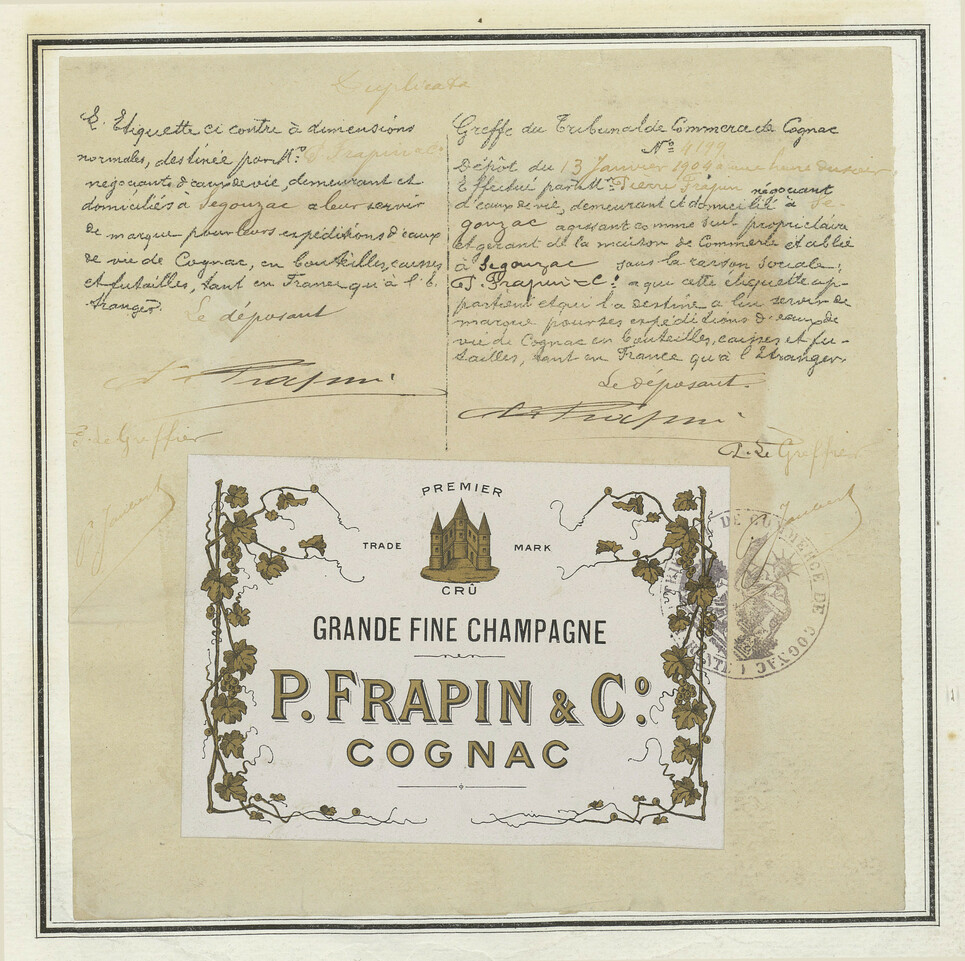 Duplicata
L'Etiquette ci contre à dimensions
normales, destinée par M.rs P. Frapin & Co
négociants d'eaux de vie, demeurant et
domiciliés à Segonzac a leur servir
de marque pour leurs expéditions d'eaux
de vie de Cognac, en bouteilles, caisses
et futailles, tant en France qu'à l'E
tranger.
Le déposant
P. Frapin
P. le Greffier
Greffe du Tribunal de Commerce de Cognac
No 4199
Dépôt du 13 Janvier 1904 a une heure du soir
Effectué par M. Pierre Frapin négociant
d'eaux de vie, demeurant et domicilié à Se-
gonzac agissant comme seul propriétaire
et gérant de la maison de Commerce établie
à Segonzac sous la raison sociale:
P. Frapin & Co. a qui cette étiquette ap-
partient et qui l'a destine a lui servir de
marque pour ses expéditions d'eaux de
vie de Cognac en bouteilles, caisses et fu-
tailles, tant en France qu'à l'Etranger.
Le déposant.
P. Frapin
P. Le Greffier
PREMIER
TRADE MARK
CRÛ
GRANDE FINE CHAMPAGNE
P. FRAPIN & Co.
COGNAC
DE COMMERCE DE COGNAC